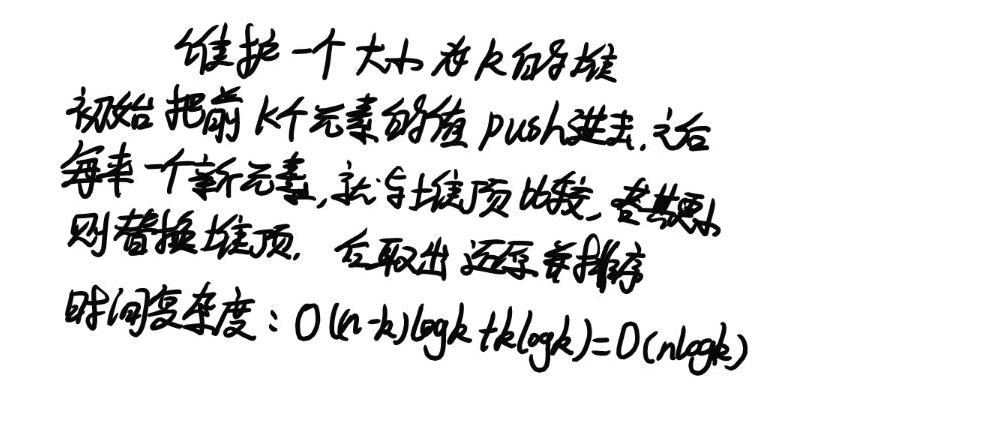 维护一个大小为k的堆
初始把前k个元素的值push进去.之后
每来一个新元素,就与堆顶比较,若其更小
则替换堆顶. 后取出还原并排序
时间复杂度：O(n-k)logk+klogk)=O(nlogk)